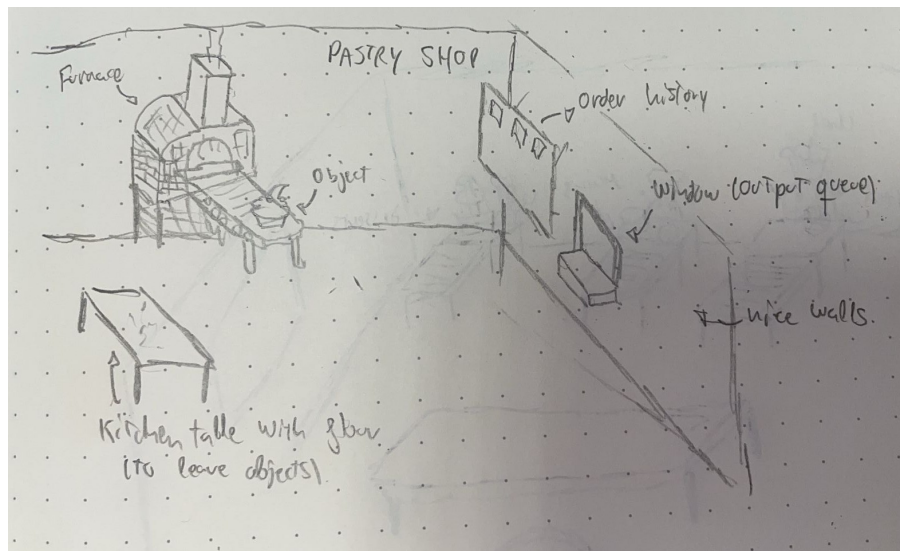 PASTRY SHOP
Furnace
Order history
Object
Window (output queue)
nice walls.
Kitchen table with flour
(to leave objects).